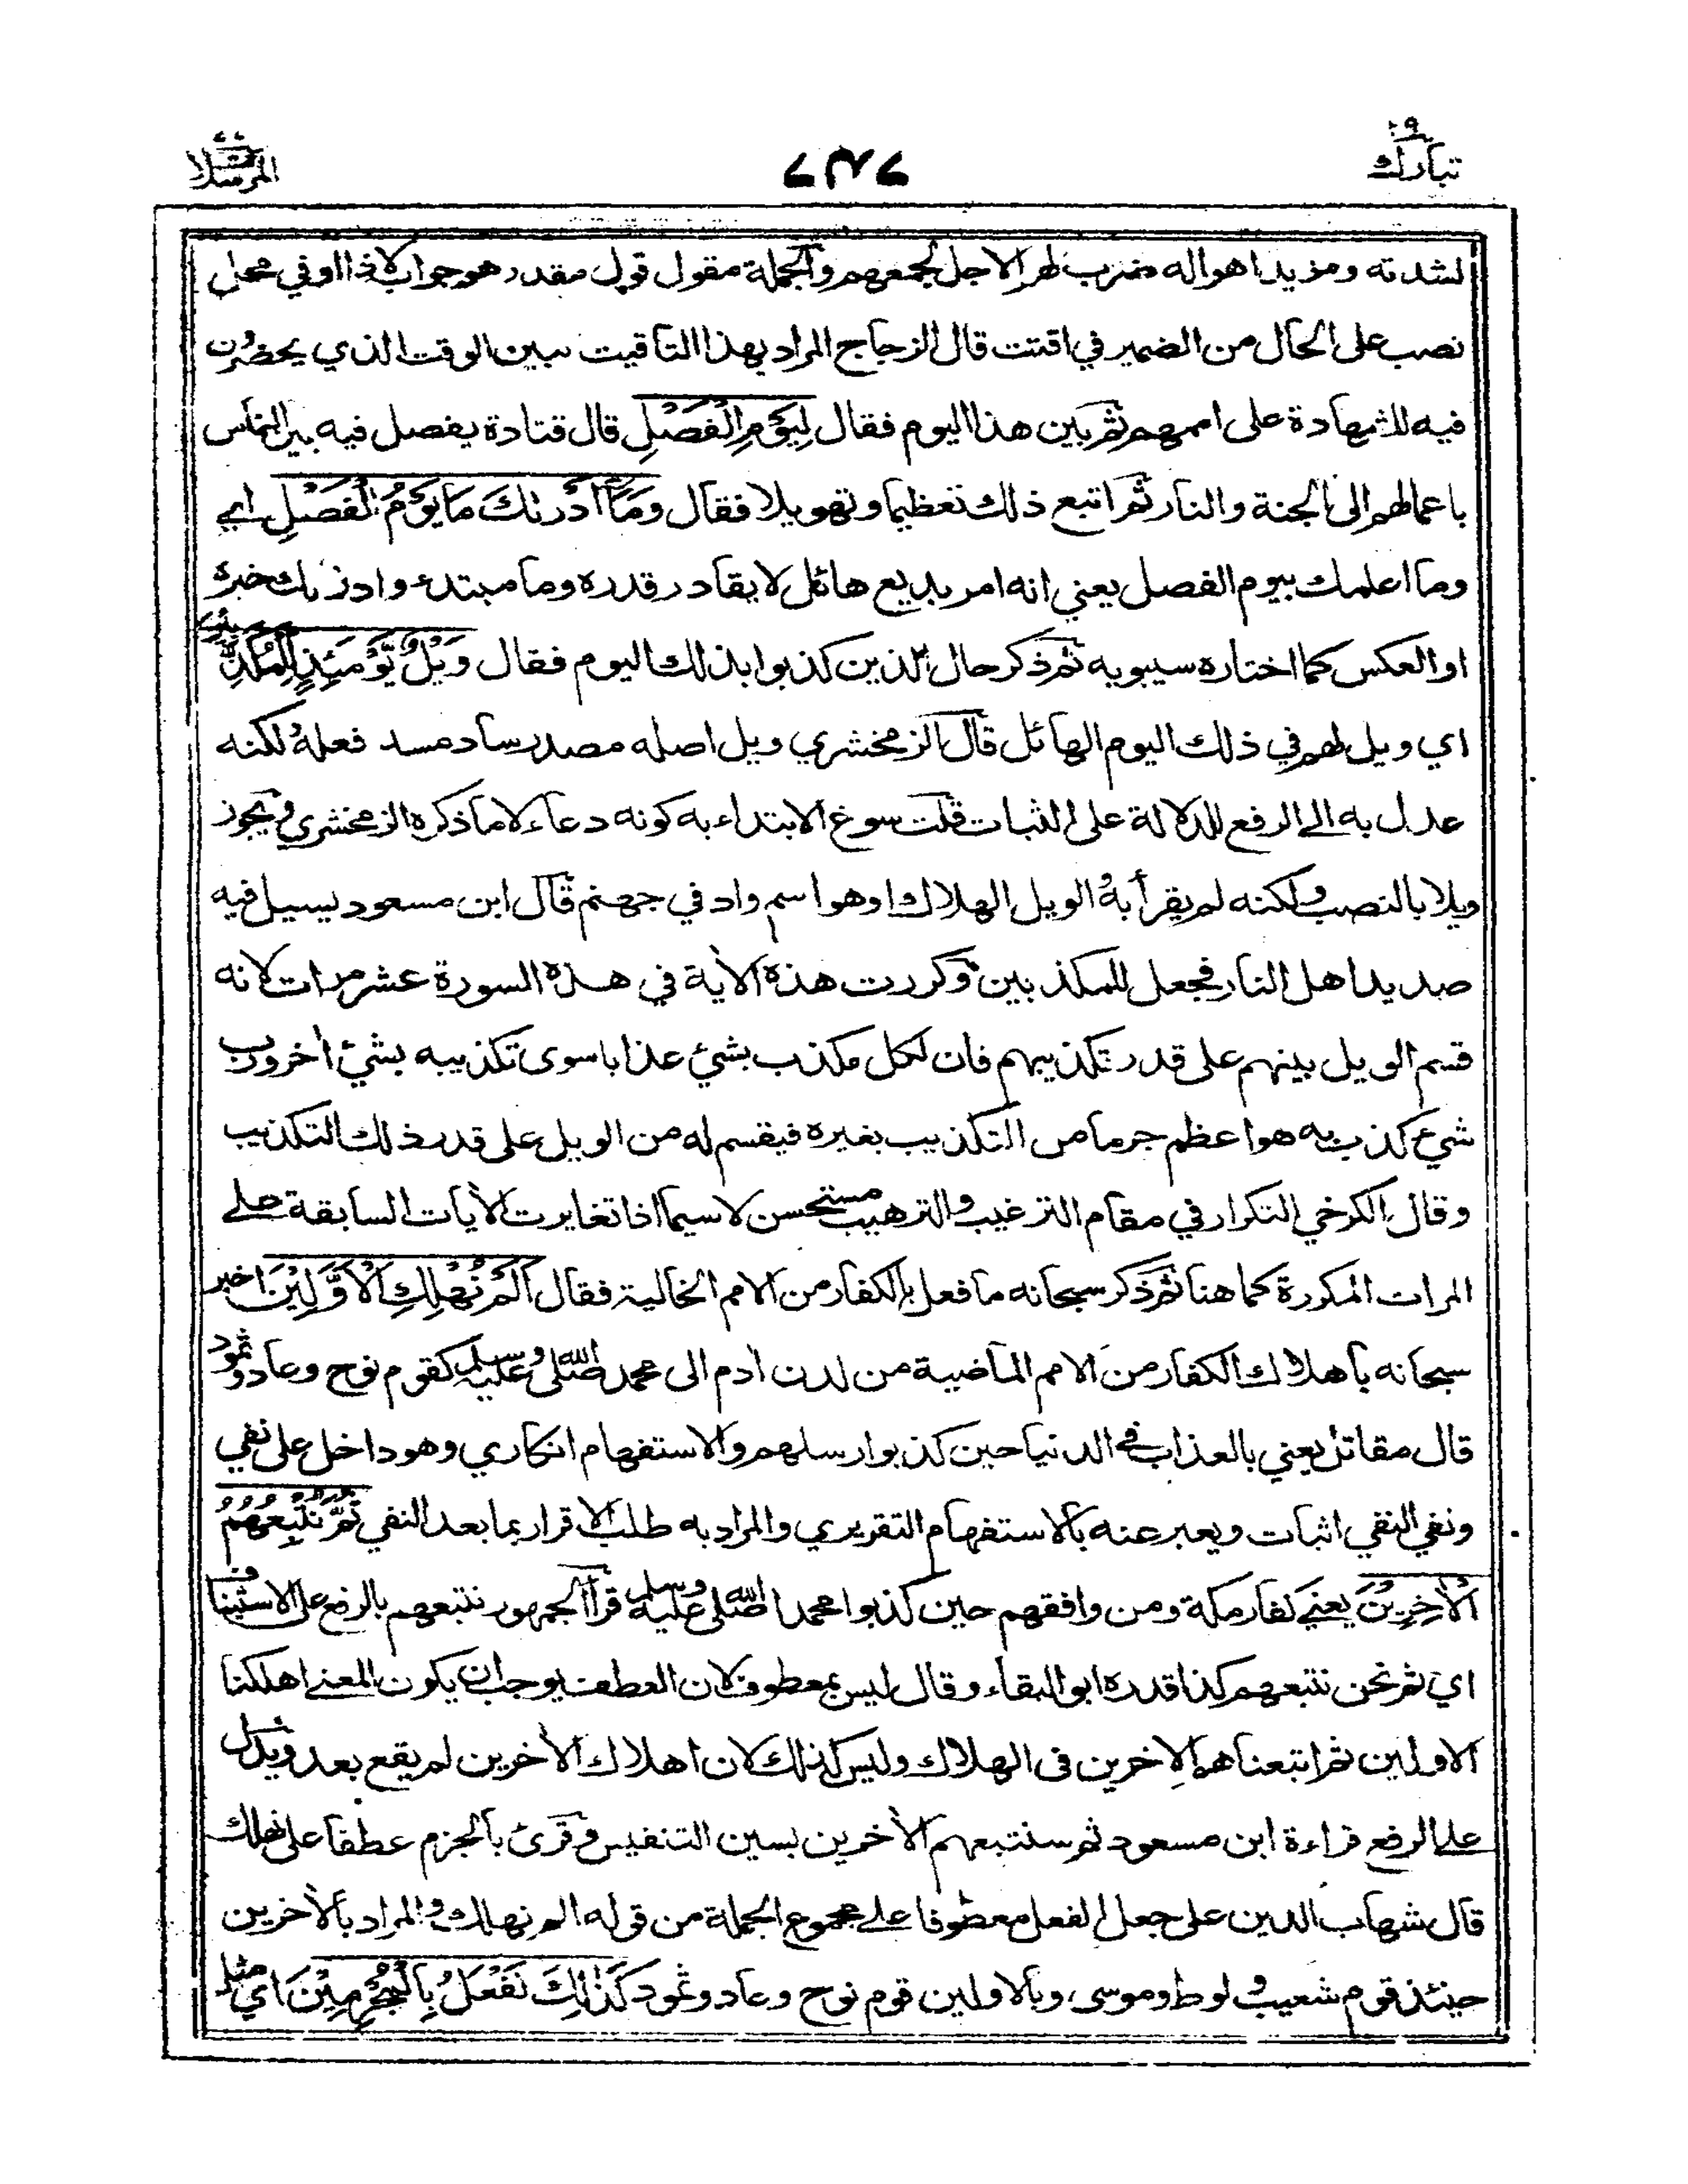 تبارك ٢٩
المرسلات ٧٧
لشدته ومزيد اهواله ضرب لهم الاجل لجمعهم والجملة مقول قول مقدر هو جواب لاذا او في محل
نصب على الحال من الضمير في اقتت قال الزجاج المراد بهذا التاقيت تبيين الوقت الذي يحضرون
فيه للشهادة على اممهم ثم بين هذا اليوم فقال لِيَوْمِ الْفَصْلِ قال قتادة يفصل فيه بين الناس
باعمالهم الى الجنة والنار ثم اتبع ذلك تعظيما وتهويلا فقال وَمَا أَدْرٰىكَ مَا يَوْمُ الْفَصْلِ اي
وما اعلمك بيوم الفصل يعني انه امر بديع هائل لا يقادر قدره وما مبتدء وادرىك خبره
او العكس كما اختاره سيبويه ثم ذكر حال الذين كذبوا بذلك اليوم فقال وَيْلٌ يَّوْمَئِذٍ لِّلْمُكَذِّبِيْنَ
اي ويل لهم في ذلك اليوم الهائل قال الزمخشري ويل اصله مصدر ساد مسد فعله لكنه
عدل به الى الرفع للدلالة على الثبات قلت سوغ الابتداء به كونه دعاء لا ما ذكره الزمخشري ويجوز
ويلا بالنصب ولكنه لم يقرأ به والويل الهلاك او هو اسم واد في جهنم قال ابن مسعود يسيل فيه
صديد اهل النار فجعل للمكذبين وكررت هذه الآية في هذه السورة عشر مرات لانه
قسم الويل بينهم على قدر تكذيبهم فان لكل مكذب بشيء عذابا سوى تكذيبه بشيء اخر ورب
شيء كذب به هو اعظم جرما من التكذيب بغيره فيقسم له من الويل على قدر ذلك التكذيب
وقال الكرخي التكرار في مقام الترغيب والترهيب مستحسن لا سيما اذا تغايرت الآيات السابقة على
المرات المكررة كما هنا ثم ذكر سبحانه ما فعل بالكفار من الامم الخالية فقال اَلَمْ نُهْلِكِ الْاَوَّلِيْنَ اخبر
سبحانه باهلاك الكفار من الامم الماضية من لدن آدم الى محمد صلى الله عليه وسلم كقوم نوح وعاد وثمود
قال مقاتل يعني بالعذاب في الدنيا حين كذبوا رسلهم والاستفهام انكاري وهو داخل على نفي
ونفي النفي اثبات ويعبر عنه بالاستفهام التقريري والمراد به طلب الاقرار بما بعد النفي ثُمَّ نُتْبِعُهُمُ
الْاٰخِرِيْنَ يعني كفار مكة ومن وافقهم حين كذبوا محمدا صلى الله عليه وسلم قرأ الجمهور نتبعهم بالرفع على الاستيناف
اي ثم نحن نتبعهم كذا قدره ابو البقاء وقال ليس بمعطوف لان العطف يوجب ان يكون المعنى اهلكنا
الاولين ثم اتبعناهم الآخرين في الهلاك وليس كذلك لان اهلاك الآخرين لم يقع بعد ويدل
على الرفع قراءة ابن مسعود ثم سنتبعهم الآخرين بسين التنفيس وقرئ بالجزم عطفا على نهلك
قال شهاب الدين على جعل الفعل معطوفا على مجموع الجملة من قوله الم نهلك والمراد بالآخرين
حينئذ قوم شعيب ولوط وموسى وبالاولين قوم نوح وعاد وثمود كَذٰلِكَ نَفْعَلُ بِالْمُجْرِمِيْنَ اي مثل